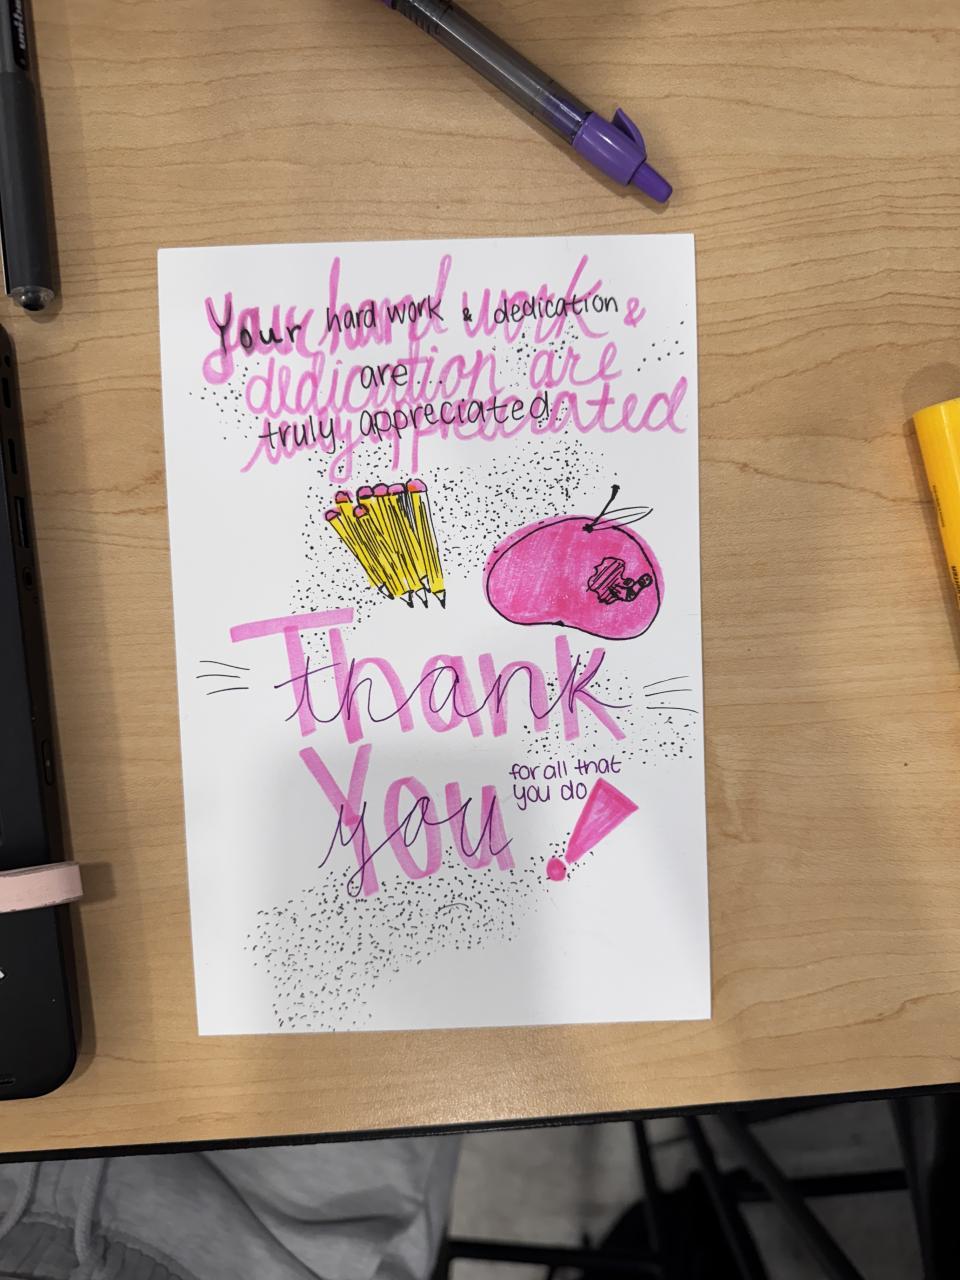 Your hard work & dedication
are...
truly appreciated.
Your hard work &
dedication are
truly appreciated
Thank
thank
You
you
for all that
you do
!